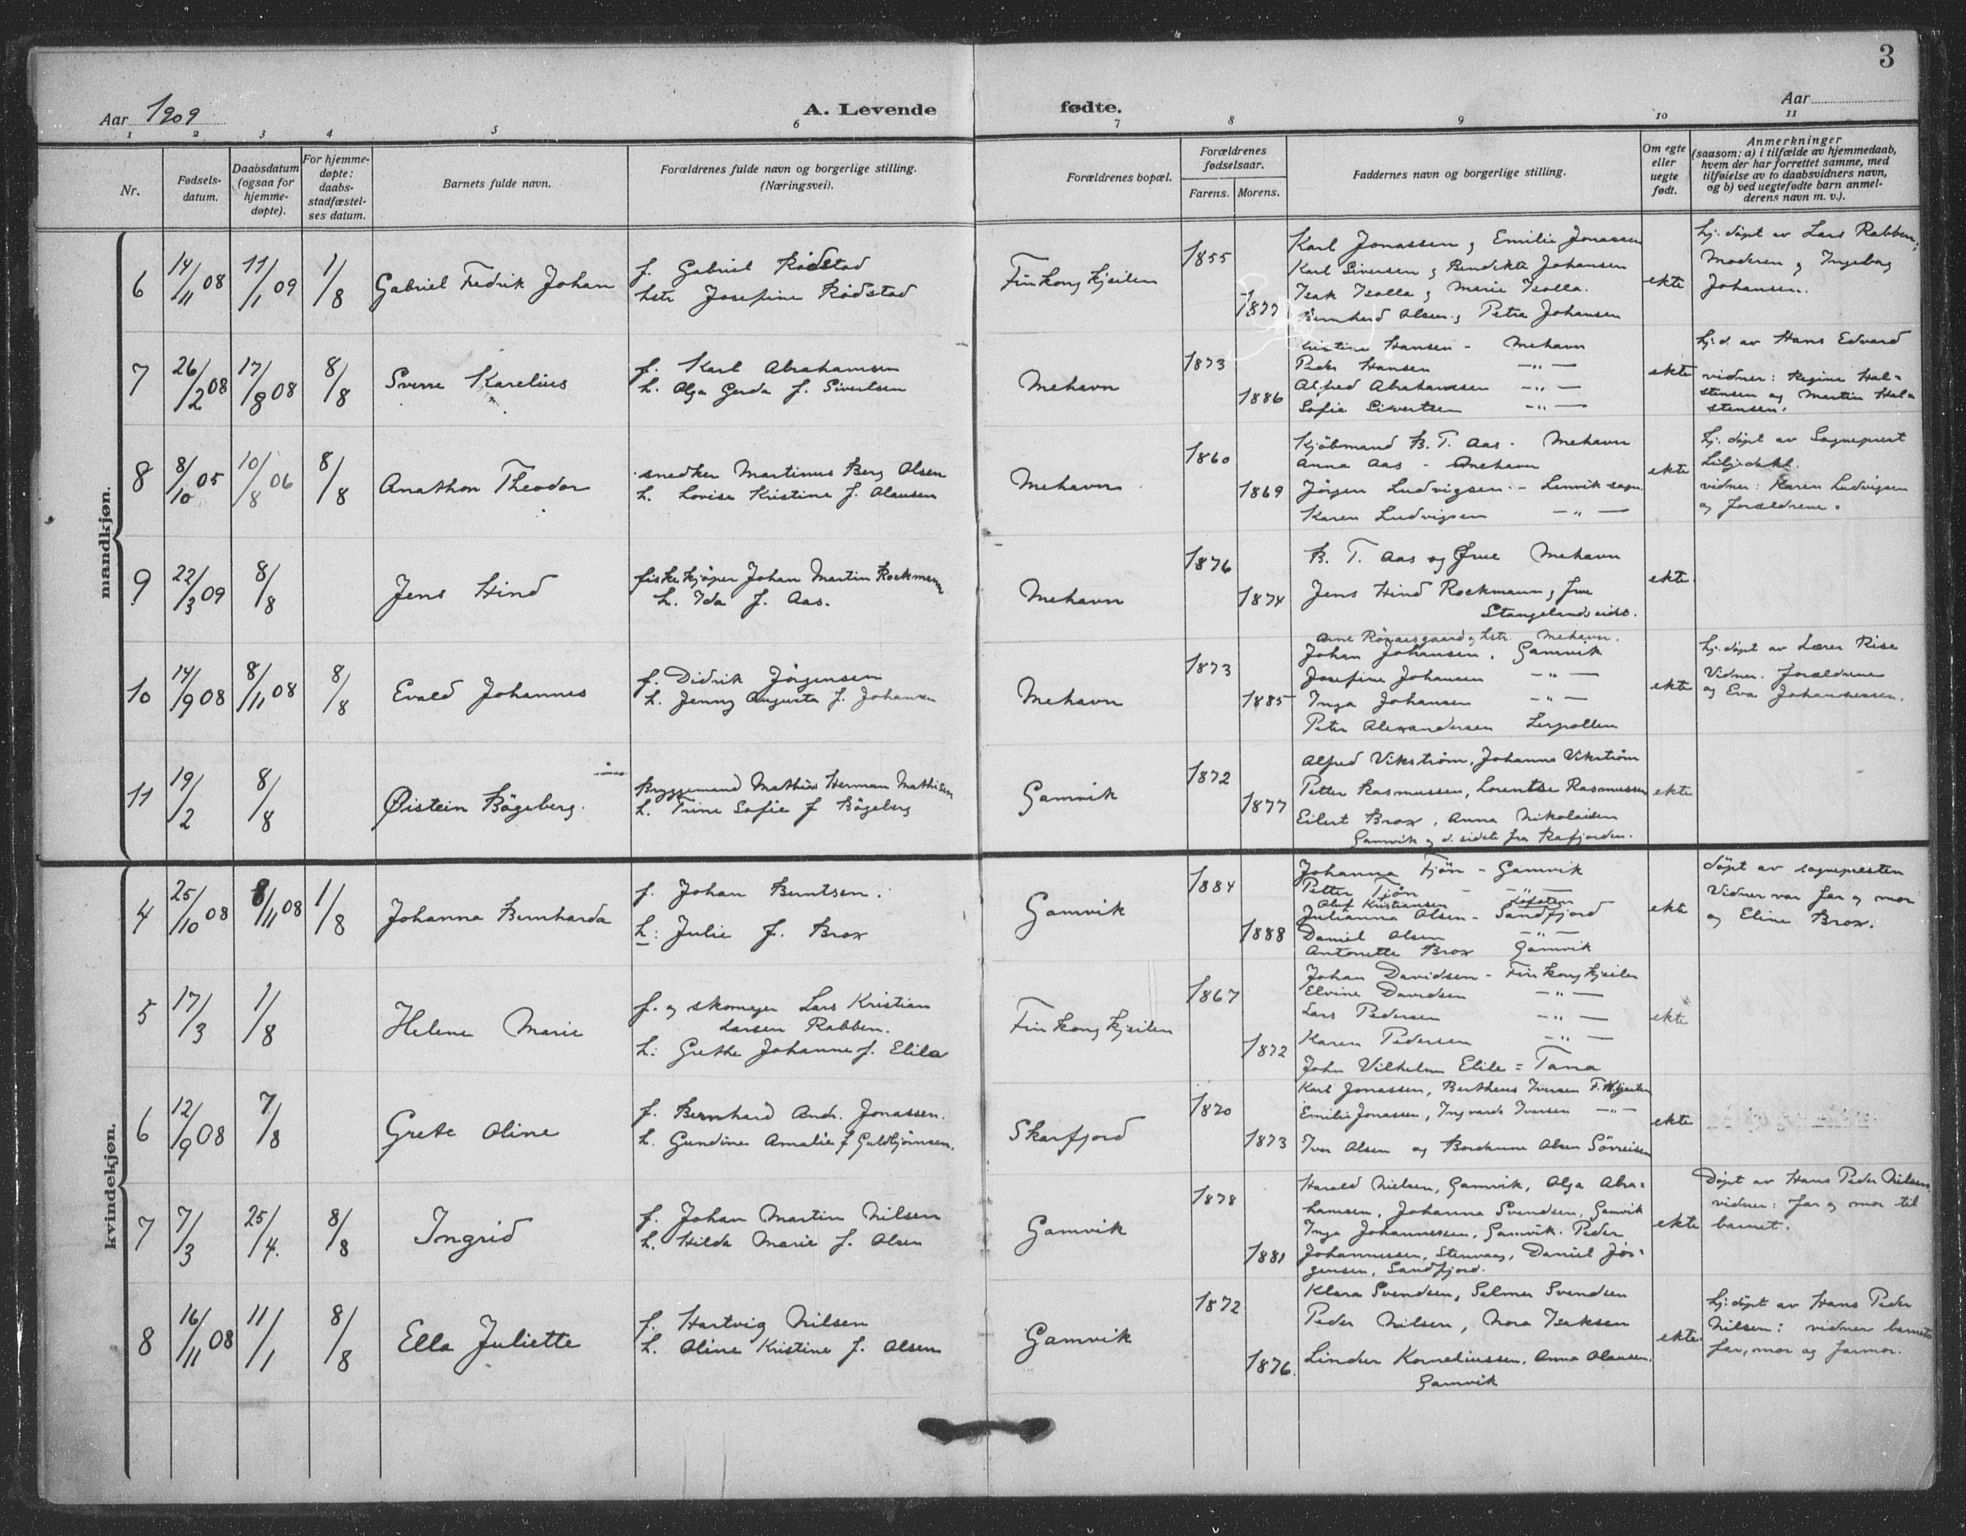 3
Aar 1909
A. Levende fødte.
Aar
1 2 3 4 5 6 7 8 9 10 11
Nr.
Fødsels-
datum.
Daabsdatum
(ogsaa for
hjemme-
døpte).
For hjemme-
døpte:
daabs-
stadfæstel-
ses datum.
Barnets fulde navn.
Forældrenes fulde navn og borgerlige stilling.
(Næringsvei).
Forældrenes bopæl.
Forældrenes
fødselsaar.
Farens. Morens.
Faddernes navn og borgerlige stilling.
Om egte
eller
uegte
født.
Anmerkninger
(saasom: a) i tilfælde av hjemmedaab,
hvem der har forrettet samme, med
tilføielse av to daabsvidners navn,
og b) ved uegtefødte barn anmel-
derens navn m. v.).
mandkjøn.
6 14/11 08 11/1 09 1/8 Gabriel Fedrik Johan
f. Gabriel Rødstad
hstr Josefine Rødstad
Finkongkjeilen
1855
1877
Karl Jonassen og Emilie Jonassen
Karl Siversen og Bendikte Johansen
Isak Isolla og Marie Isolla.
Bernhard Olsen og Petra Johansen
ekte
hj. døpt av Lars Rabben;
Moderen og Ingeborg
Johansen.
7 26/2 08 17/8 08 8/8 Sverre Karelius
f. Karl Abrahamsen
h. Olga Gerda f. Sivertsen
Mehavn
1873
1886
Kristine Hansen - Mehavn
Peder Hansen -"-
Alfred Abrahamsen -"-
Sofie Sivertsen -"-
ekte
hj. d. av Hans Edvard
vidner: Regine Hal-
stensen og Martin Hal-
stensen.
8 8/10 05 10/8 06 8/8 Anathon Theodor
snedker Martinus Berg Olsen
h. Lovise Kristine f. Olausen
Mehavn
1860
1869
Kjøbmand B. T. Aas - Mehavn
Anna Aas - Mehavn
Jörgen Ludvigsen - Lenvik sogn
Karen Ludvigsen -"-
ekte
hj. døpt av Sogneprest
Liljedahl.
vidner: Karen Ludvigsen
og forældrene.
9 22/3 09 8/8 Jens Hind
fiskekjøper Johan Martin Rockmann
h. Ida f. Aas.
Mehavn
1876
1874
B. T. Aas og Frue Mehavn
Jens Hind Rockmann, frue
Stangelandseidet.
Arne Rönaasgaard og hstr. Mehavn.
ekte
10 14/9 08 8/11 08 8/8 Evald Johannes
f. Didrik Jørgensen
h. Jenny Augusta f. Johansen
Mehavn
1873
1885
Johan Johansen, Gamvik
Josefine Johansen -"-
Inga Johansen -"-
Peter Alexandersen Leirpollen
ekte
hj. døpt av Lærer Rise
Vidner. forældrene
og Eva Johannessen.
11 19/2 8/8 Øistein Bögeberg.
Bryggemand Mathias Herman Mathisen
h. Trine Sofie f Bögeberg
Gamvik
1872
1877
Alfred Vikstrøm, Johanna Vikstrøm
Petter Rasmussen, Lorentse Rasmussen
Eilert Brox, Anna Nikolaisen
Gamvik og d. sidste fra Kafjorden.
ekte
kvindekjøn.
4 25/10 08 8/11 08 1/8 Johanna Bernharda
f. Johan Berntsen.
h: Julie f. Brox
Gamvik
1884
1888
Johanna Fjøn - Gamvik
Petter Fjøn - " -
Oluf Kristiansen Lofoten
Julianna Olsen - Sandfjord
Daniel Olsen -"-
Antonette Brox Gamvik
ekte
døpt av sognepresten
Vidner var far og mor
og Eline Brox.
5 17/3 1/8 Helene Marie
f. og skomager Lars Kristian
Larsen Rabben.
h: Grethe Johanne f. Elila
Finkongkjeilen
1867
1872
Johan Davidsen - Finkongkjeilen
Elvine Davidsen -"-
Lars Pedersen -"-
Karen Pedersen -"-
John Vilhelm Elile = Tana
ekte
6 12/9 08 7/8 Grete Oline
f. Bernhard Andr. Jonassen.
h. Gundine Amalie f Guldbjørnsen.
Skarfjord
1870
1873
Karl Jonassen, Bertheus Iversen F.K.kjeilen
Emilie Jonassen, Ingvarda Iversen -"-
Iver Olsen og Bordanna Olsen Sörveisen
ekte
7 7/3 25/4. 8/8 Ingrid
f. Johan Martin Nilsen
h. Hilda Marie f. Olsen
Gamvik
1878
1881
Harald Nielsen, Gamvik, Olga Abra-
hamsen, Johanna Svendsen, Gamvik
Inga Johannessen, Gamvik. Peder
Johannessen, Stenvaag, Daniel Jør-
gensen, Sandfjord.
ekte
Døpt av Hans Peder Nilsen,
vidner: far og mor til
barnet.
8 16/11 08 11/1 8/8 Ella Juliette
f. Hartvig Nilsen
h. Oline Kristine f. Olsen
Gamvik
1872
1876.
Klara Svendsen, Selmer Svendsen
Peder Nilsen, Nora Isaksen
Linder Korneliussen, Anna Olausen.
Gamvik
ekte
hj. døpt av Hans Peder
Nilsen: vidner barnets
far, mor og farmor.